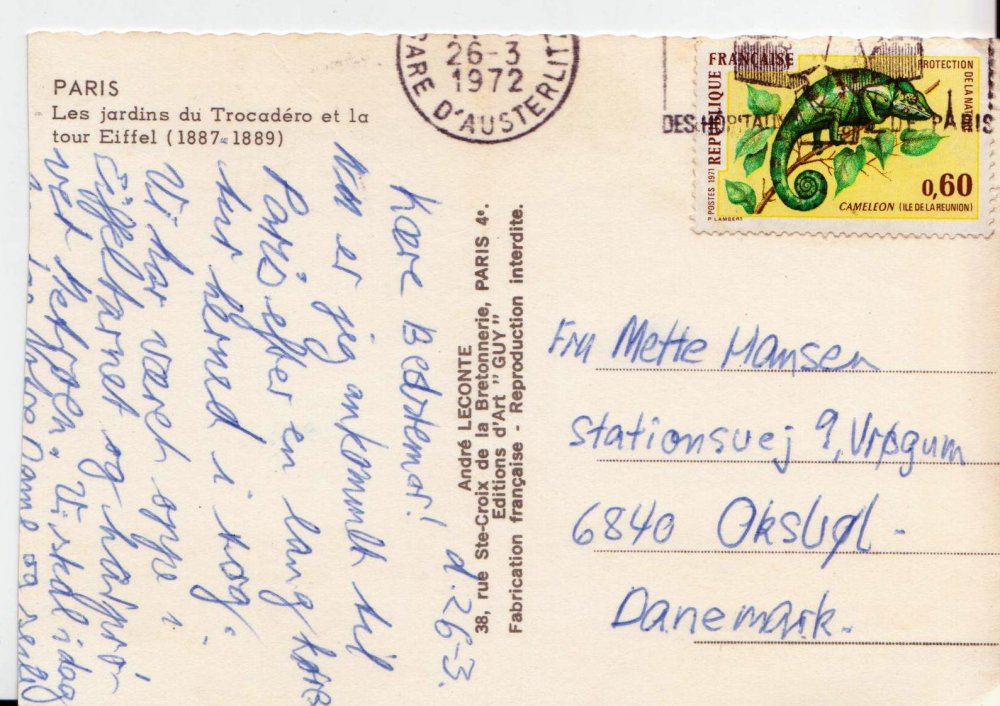 PARIS
Les jardins du Trocadéro et la
tour Eiffel (1887-1889)
26-3
1972
GARE D'AUSTERLITZ
DES HOPITAUX DE PARIS
REPUBLIQUE FRANÇAISE
PROTECTION DE LA NATURE
POSTES 1971
0,60
CAMELEON (ILE DE LA REUNION)
P. LAMBERT
Kære Bedstemor! d. 26-3.
Nu er jeg ankommet til
Paris efter en lang køre
tur herned i tog.
Vi har været oppe i
Eiffeltarnet og har prø-
vet Metroen. Vi skal i dag
Notre Dame og
André LECONTE
38, rue Ste-Croix de la Bretonnerie, PARIS 4e.
Editions d'Art "GUY"
Fabrication française - Reproduction interdite.
Fru Mette Hansen
Stationsvej 9, Vrøgum
6840 Oksbøl -
Danemark.